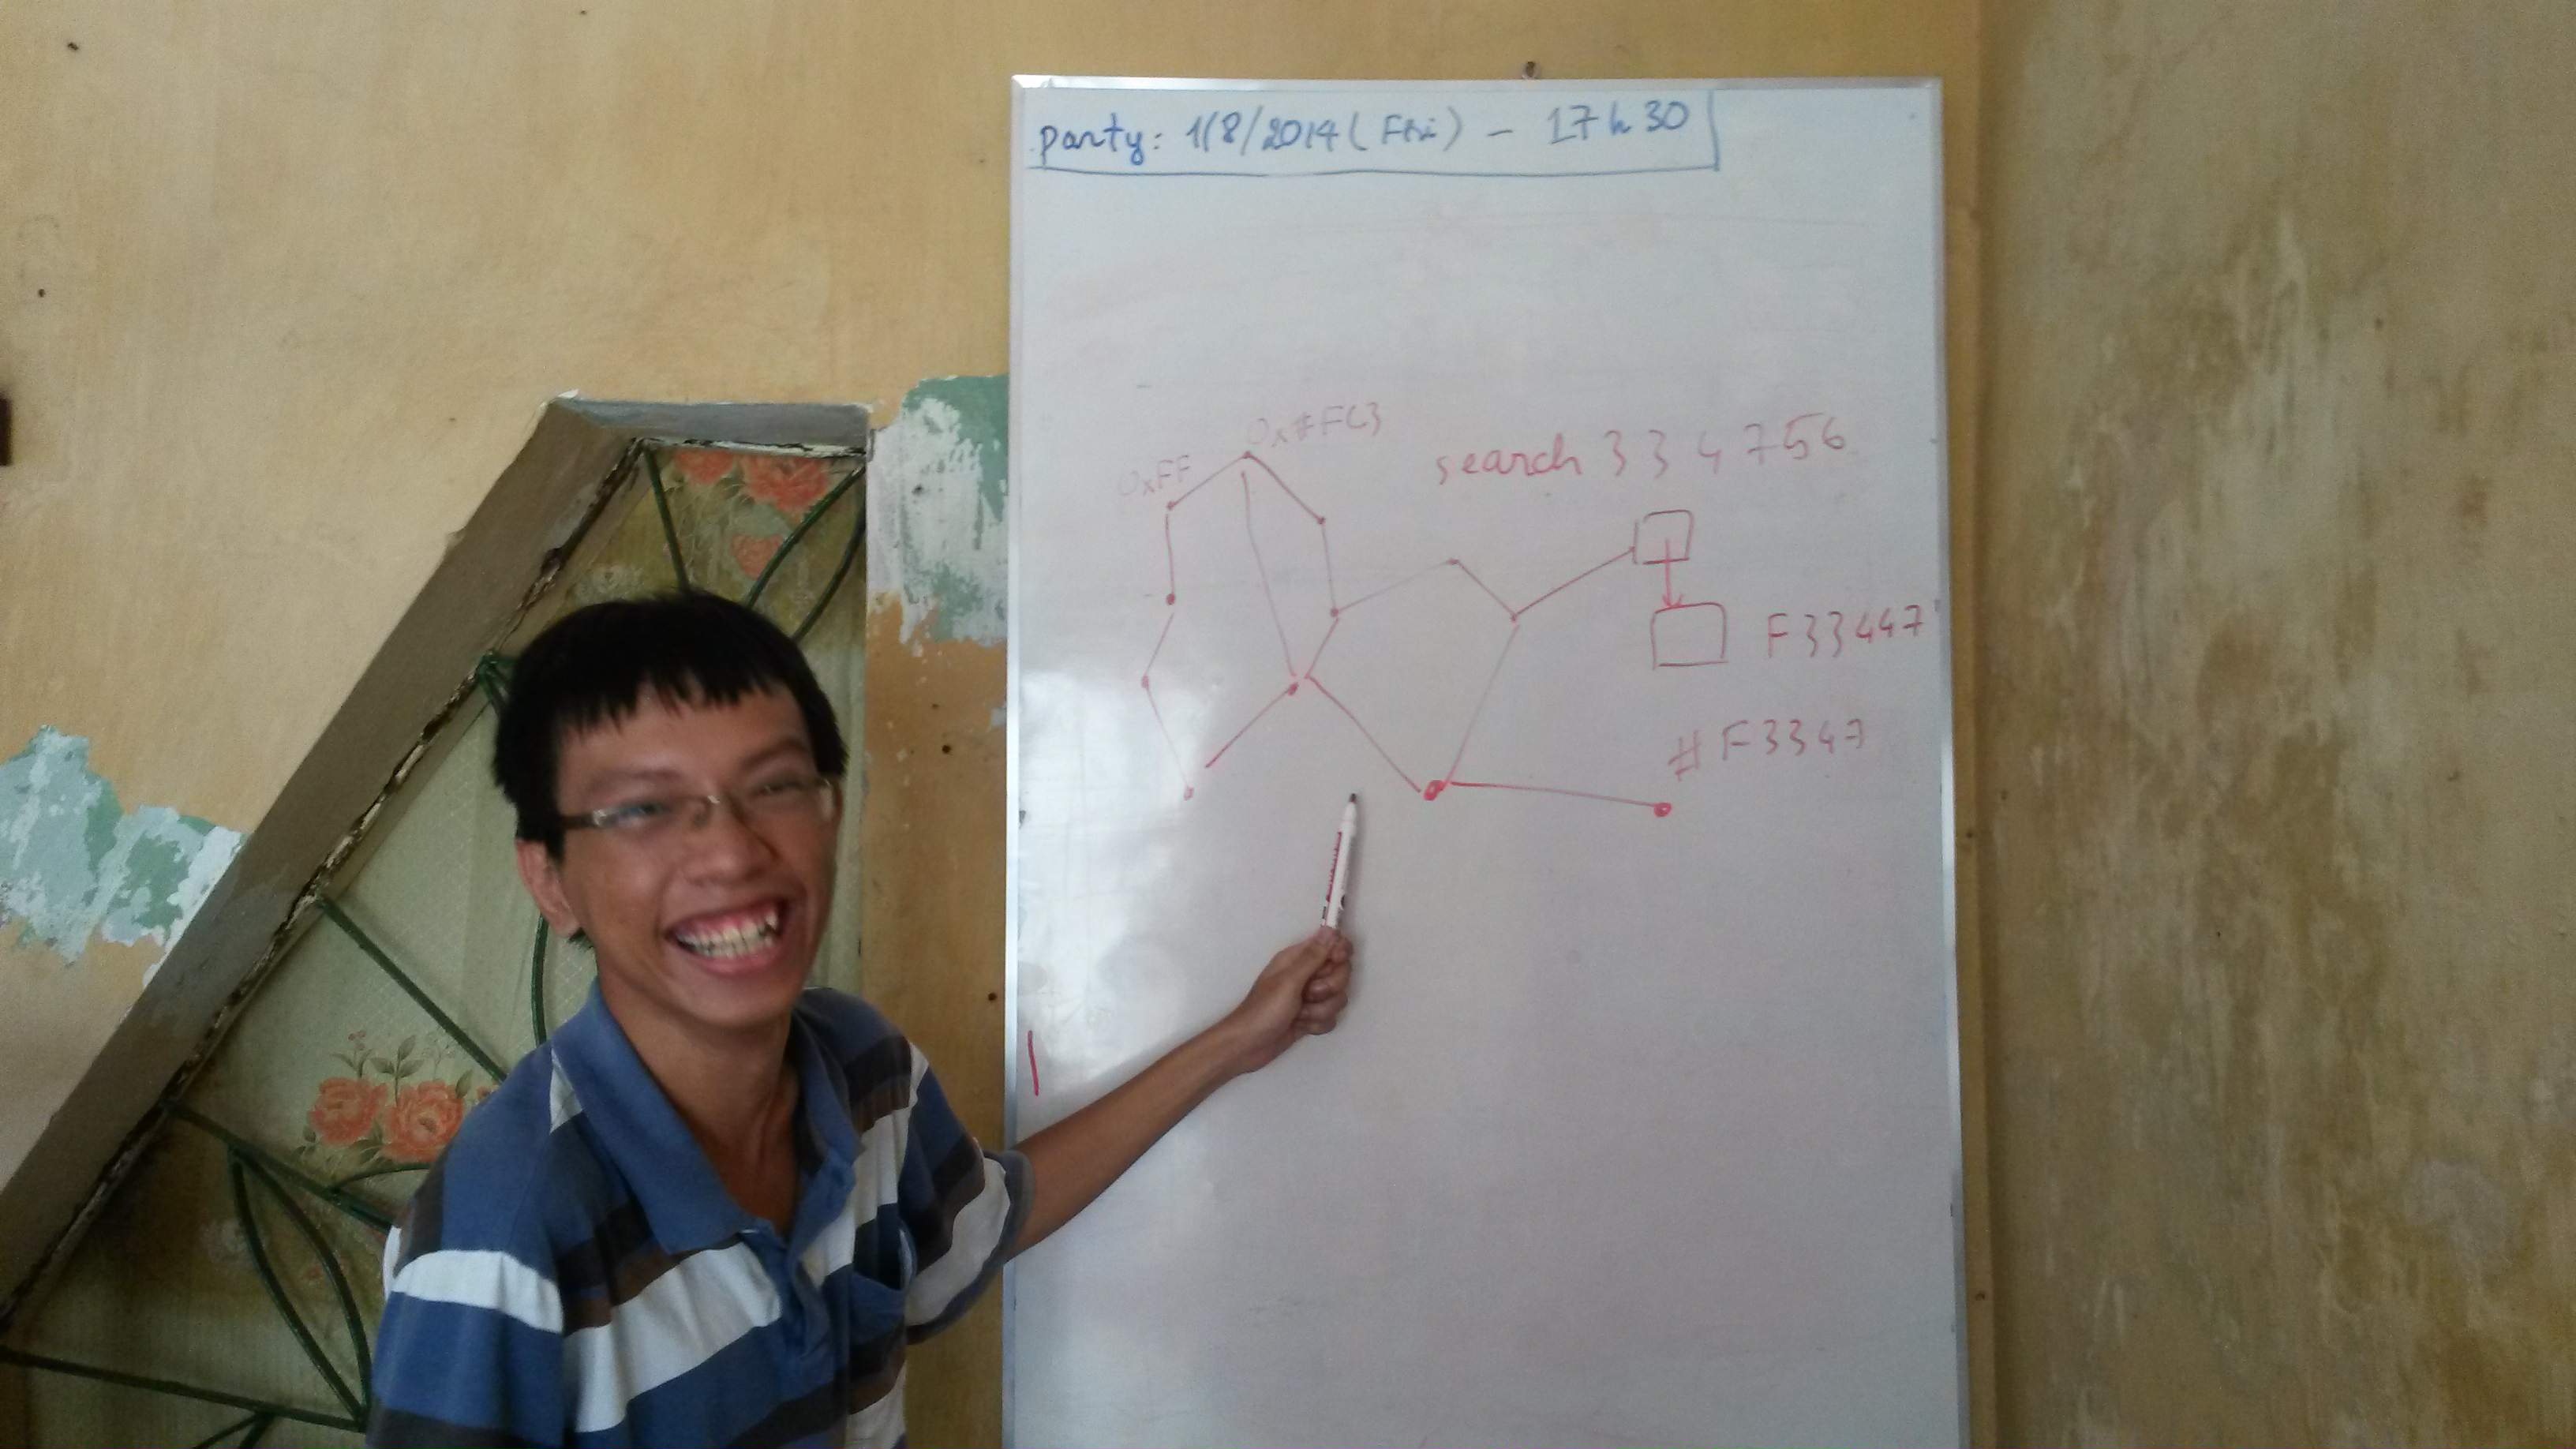 party: 1/8/2014 (Fri) - 17h30
0x#FC3
0xFF
search 334756
F33447
#F3347